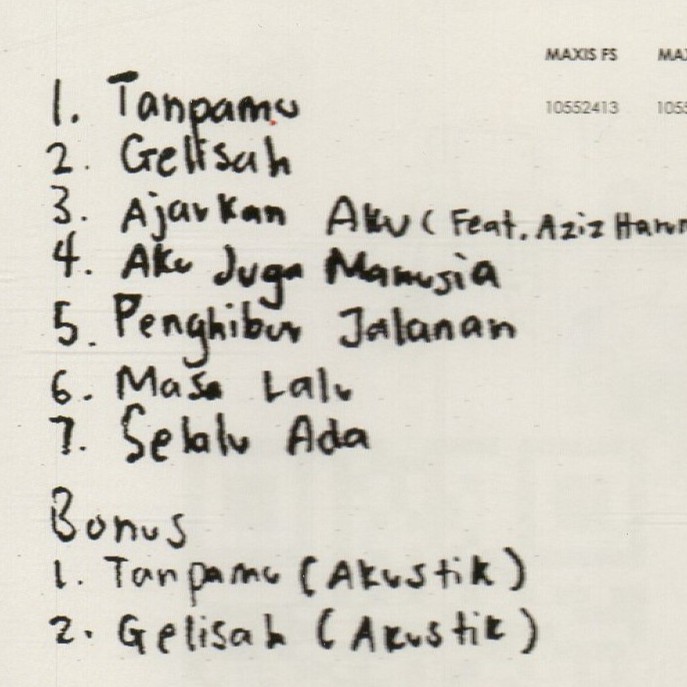 MAXIS FS
10552413
1. Tanpamu
2. Gelisah
3. Ajarkan Aku (Feat. Aziz Harun
4. Aku Juga Manusia
5. Penghibur Jalanan
6. Masa Lalu
7. Selalu Ada
Bonus
1. Tanpamu (Akustik)
2. Gelisah (Akustik)